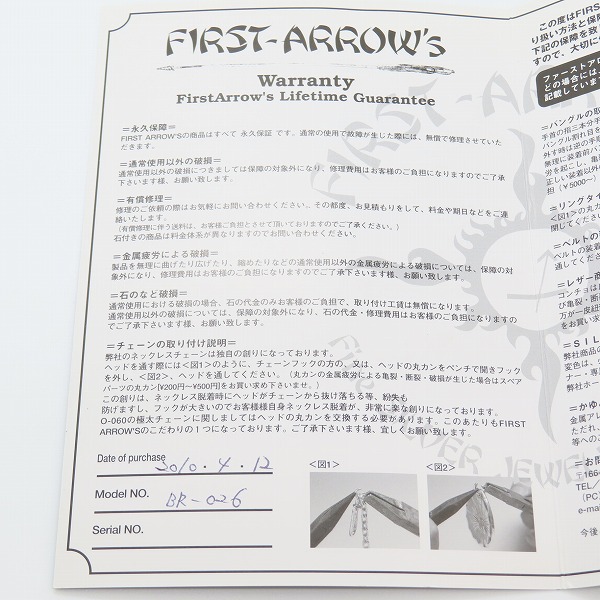 FIRST-ARROW's
Warranty
FirstArrow's Lifetime Guarantee
＝永久保障＝
FIRST ARROW'Sの商品はすべて 永久保証 です。通常の使用で故障が生じた際には、無償で修理させていた
だきます。
＝通常使用以外の破損＝
通常使用以外の破損につきましては保障の対象外になり、修理費用はお客様のご負担になりますのでご了承
下さいます様、お願い致します。
＝有償修理＝
修理のご依頼の際はお気軽にお問い合わせください。その都度、お見積もりをして、料金や期日などをご連
絡いたします。
(有償修理に伴う送料は、お客様ご負担とさせて頂いておりますのでご了承ください。)
石付きの商品は料金体系が異なりますのでお問い合わせください。
＝金属疲労による破損＝
製品を無理に曲げたり広げたり、縮めたりなどの通常使用以外の金属疲労による破損については、保障の対
象外になり、修理費用はお客様のご負担になりますのでご了承下さいます様、お願い致します。
＝石のなど破損＝
通常使用における破損の場合、石の代金のみお客様のご負担で、取り付け工賃は無償になります。
通常使用以外の破損については、保障の対象外になり、石の代金・修理費用はお客様のご負担になりますの
でご了承下さいます様、お願い致します。
＝チェーンの取り付け説明＝
弊社のネックレスチェーンは独自の創りになっております。
ヘッドを通す際には＜図1＞のように、チェーンフックの方の、又は、ヘッドの丸カンをペンチで開きフック
を外し、＜図2＞、ヘッドを通してください。(丸カンの金属疲労による亀裂・断裂・破損が生じた場合はスペア
パーツの丸カン[¥200円～¥500円]をお買い求め下さいませ。)
この創りは、ネックレス脱着時にヘッドがチェーンから抜け落ちる等、紛失も
防げますし、フックが大きいのでお客様自身ネックレス脱着が、非常に楽な創りになっております。
O-060の極太チェーンに関しましてはヘッドの丸カンを交換する必要がございます。このあたりもFIRST
ARROW'Sのこだわりの１つになっております。ご了承下さいます様、宜しくお願い致します。
Date of purchase 2010.4.12
Model NO. BR-026
Serial NO.
＜図1＞
＜図2＞
この度はFIRS
り扱い方法と保
下記の保障を致
すので、大切に
ファーストアロ
どの場合には、
記載しています
＝バングルの取
手首の指三本分手
バングル割れ目を
外す時は逆の手順
無理に装着前バン
労を起こし、亀
正しい装着以外
担（¥5000～）
＝リングタイ
＜図1＞の丸カ
閉じてください
＝ベルトの
ベルトの装着
通してくださ
＝レザー商
コンチョは
び亀裂・断
万が一度紐
をお買い求
＝ＳＩＬ
弊社商品の
変色は、
ナー・専
弊社ホー
＝かゆ
金属アレ
ただれ、
等と
＝お問
〒166
TEL／
(PC)
e-ma
今後